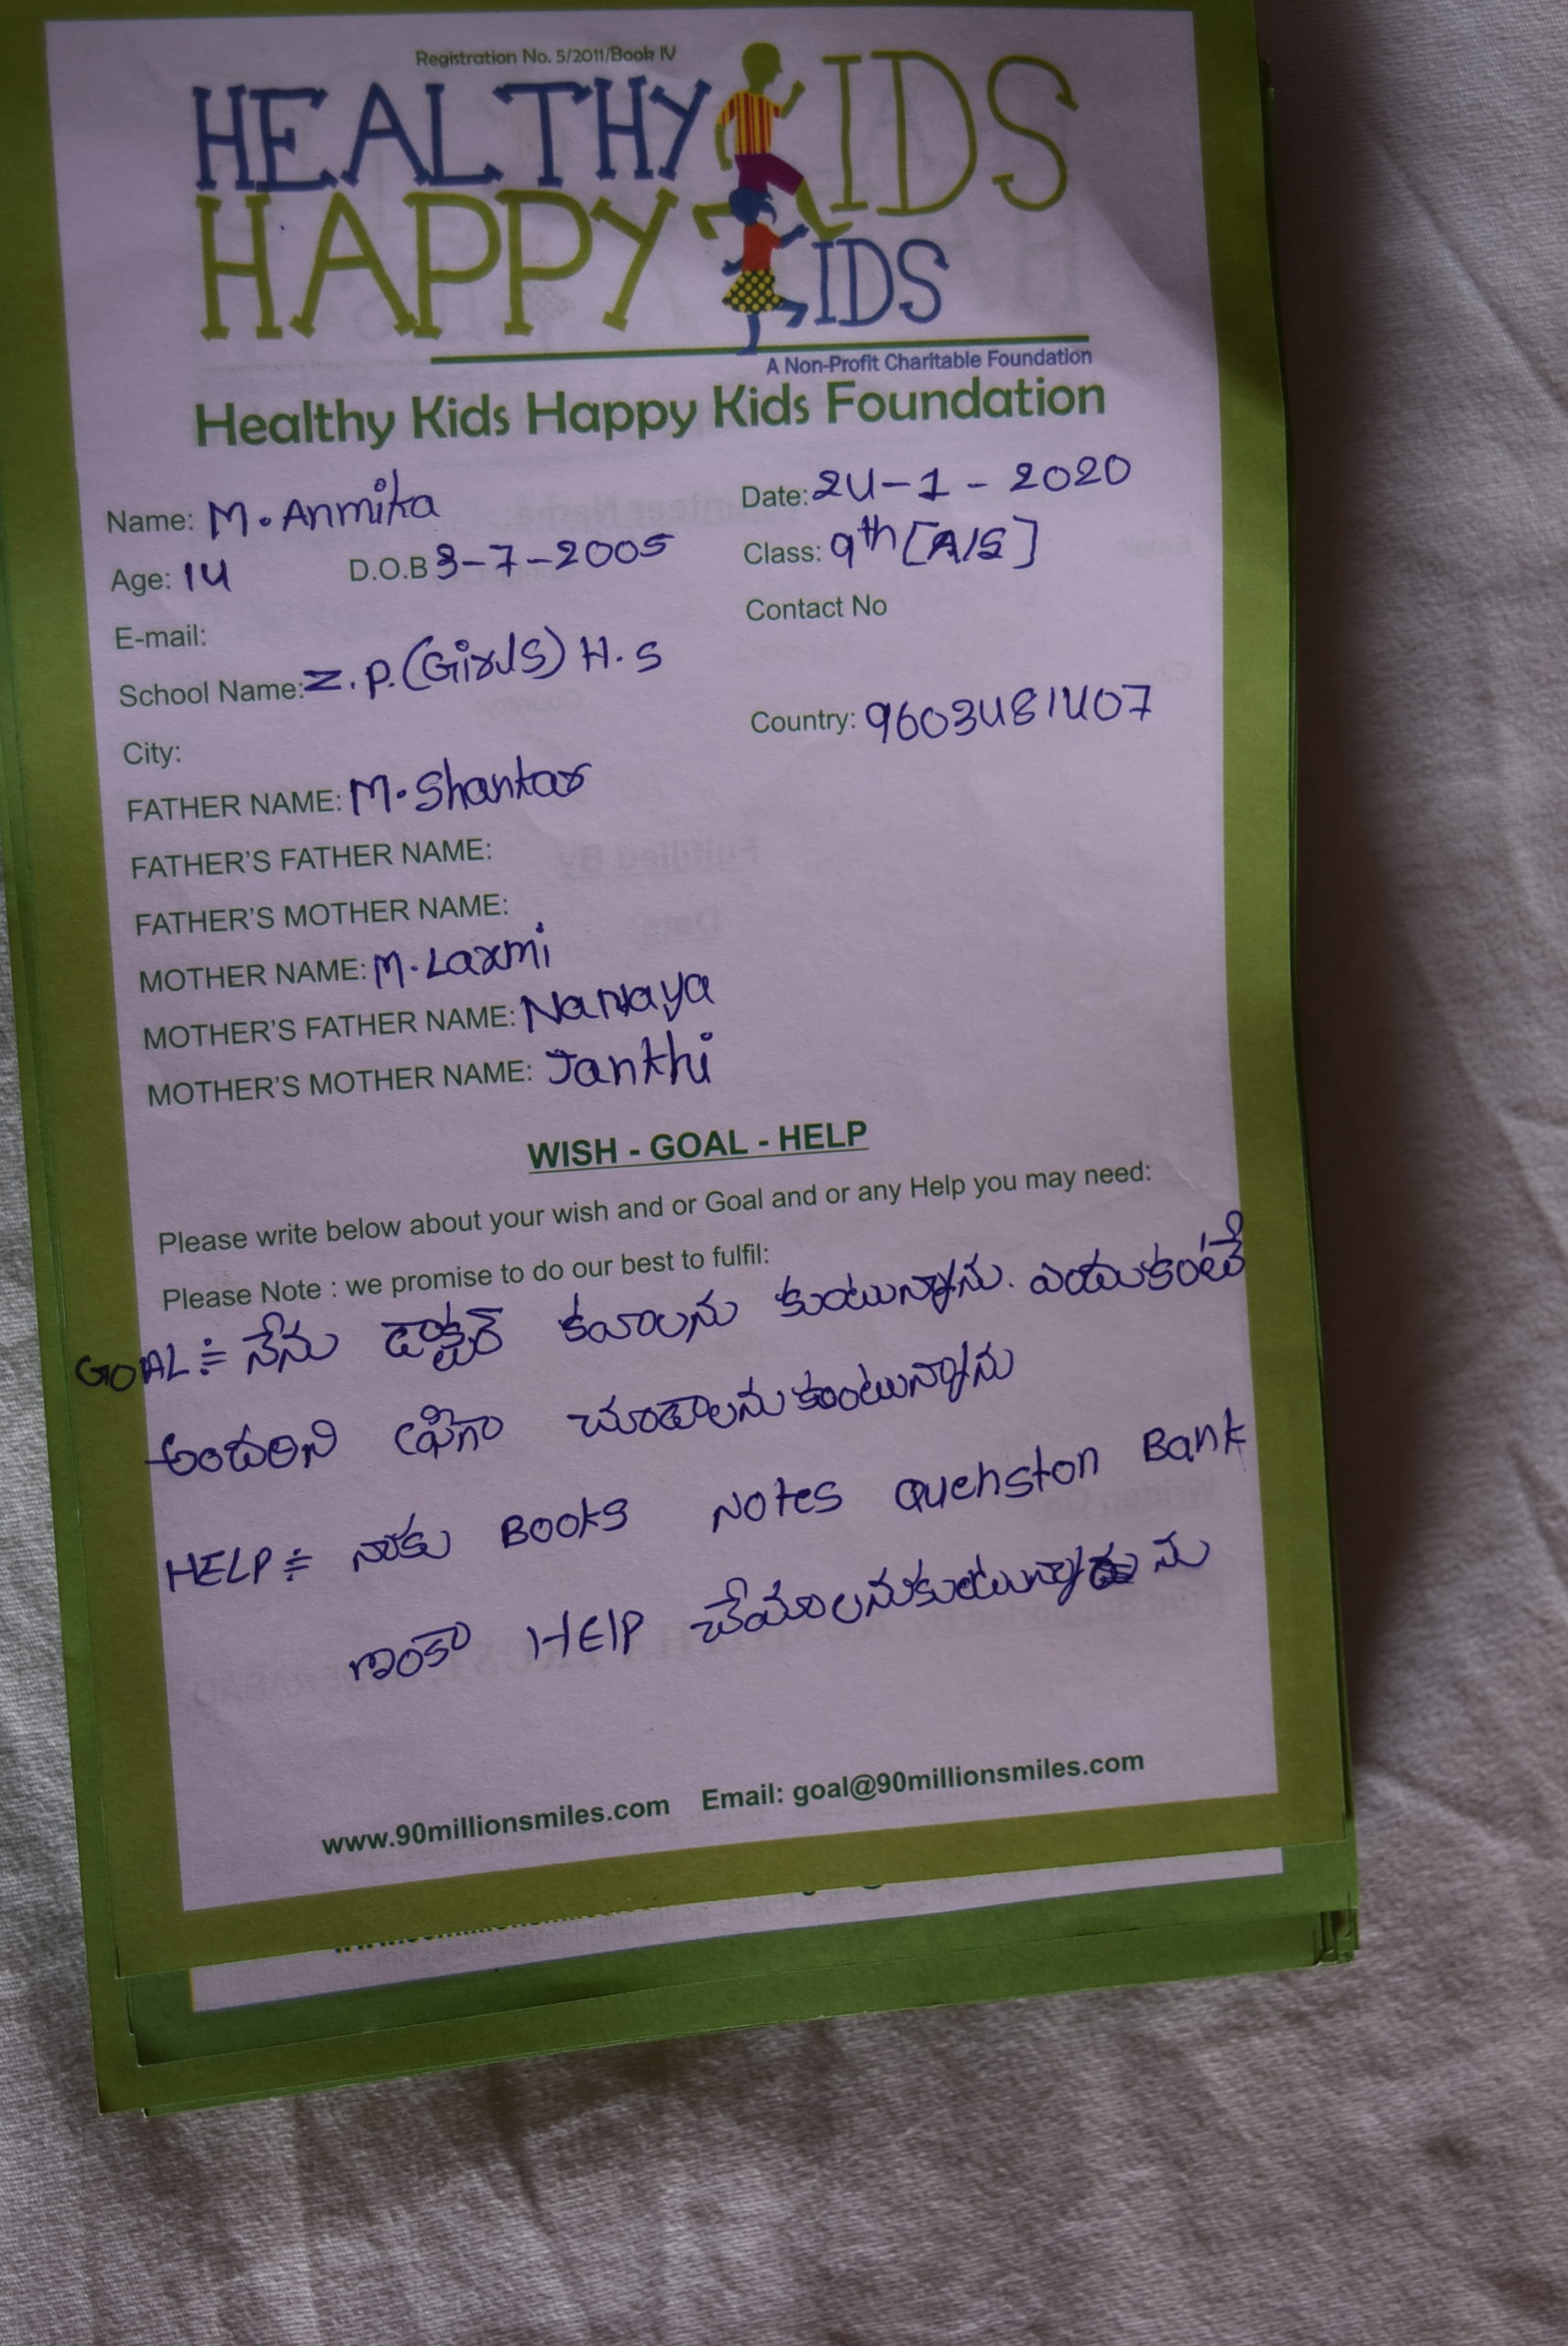 Registration No. 5/2011/Book IV
HEALTHY KIDS
HAPPY KIDS
A Non-Profit Charitable Foundation
Healthy Kids Happy Kids Foundation
Name: M. Anmika Date: 24-1-2020
Age: 14 D.O.B 3-7-2005 Class: 9th [A/S]
E-mail: Contact No
School Name: Z.P.(Girls) H.S
City: Country: 9603481407
FATHER NAME: M. Shankar
FATHER'S FATHER NAME:
FATHER'S MOTHER NAME:
MOTHER NAME: M. Laxmi
MOTHER'S FATHER NAME:
MOTHER'S MOTHER NAME: Jankhi
WISH - GOAL - HELP
Please write below about your wish and or Goal and or any Help you may need:
Please Note : we promise to do our best to fulfil:
GOAL :- నేను డాక్టర్ కవాలను కుంటున్నాను. ఎందుకంటే
అందరిని చూడాలనుకుంటున్నాను
HELP :- నాకు BOOKS NOTES Quenston Bank
ఇంకా HELP చేయాలనుకుంటున్నాను
www.90millionsmiles.com Email: goal@90millionsmiles.com